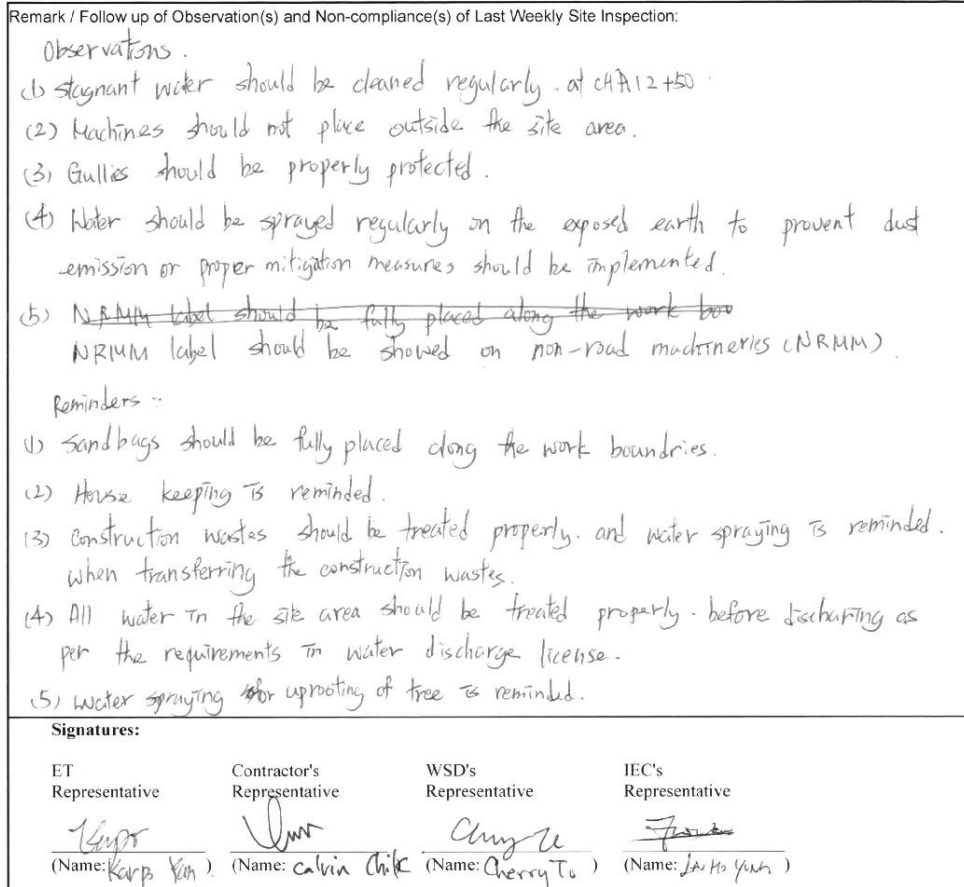 Remark / Follow up of Observation(s) and Non-compliance(s) of Last Weekly Site Inspection:
Observations.
(1) stagnant water should be cleaned regularly. at CHA12+50
(2) Machines should not place outside the site area.
(3) Gullies should be properly protected.
(4) Water should be sprayed regularly on the exposed earth to provent dust
emission or proper mitigation measures should be implemented.
(5) NRMM label should be fully placed along the work bou
NRMM label should be showed on non-road machineries (NRMM)
Reminders :-
(1) Sandbags should be fully placed along the work boundries.
(2) House keeping is reminded.
(3) Construction wastes should be treated properly. and water spraying is reminded.
when transferring the construction wastes.
(4) All water in the site area should be treated properly. before discharing as
per the requirements in water discharge license.
(5) Water spraying for uprooting of tree is reminded.
Signatures:
ET Contractor's WSD's IEC's
Representative Representative Representative Representative
(Name: Karp Yan ) (Name: Calvin ) (Name: Cherry To ) (Name: )